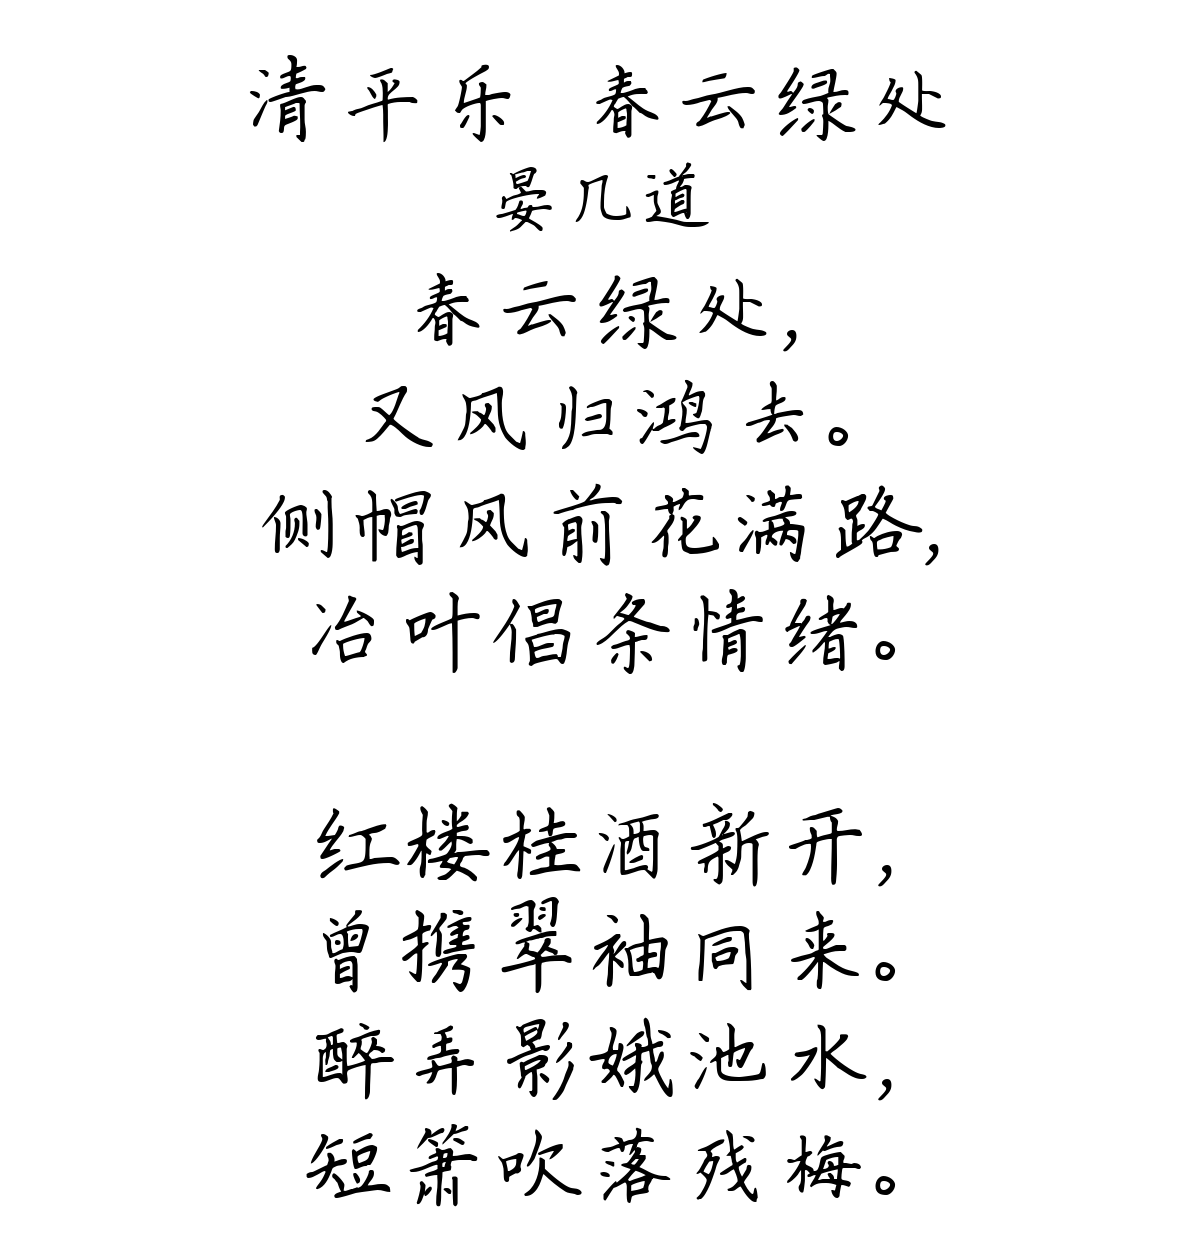 清平乐 春云绿处
晏几道
春云绿处,
又风归鸿去。
侧帽风前花满路,
冶叶倡条情绪。
红楼桂酒新开,
曾携翠袖同来。
醉弄影娥池水,
短箫吹落残梅。